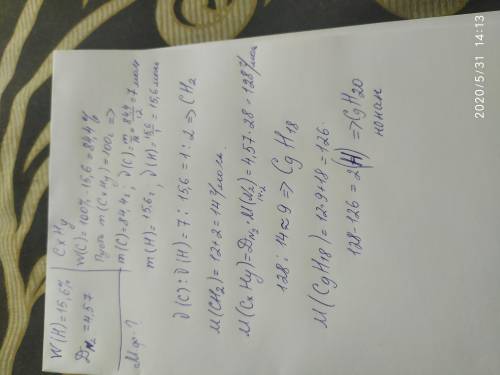 W(H)=15,6%
D N₂ = 4,57
М.ф-?
CxHy
W(C)=100%-15,6=84,4%
Пусть m(CxHy)=100г =>
m(C)=84,4г; ν(C)=m/M=84,4/12=7моль
m(H)=15,6г, ν(H)=15,6/1=15,6моль
ν(C):ν(H)=7:15,6=1:2=>CH₂
M(CH₂)=12+2=14г/моль
M(CxHy)=D N₂·M(N₂)=4,57·28=128г/моль
14·2
128:14≈9=>C₉H₁₈
M(C₉H₁₈)=12·9+18=126
128-126=2(H)=>C₉H₂₀
нонан
2020/5/31 14:13